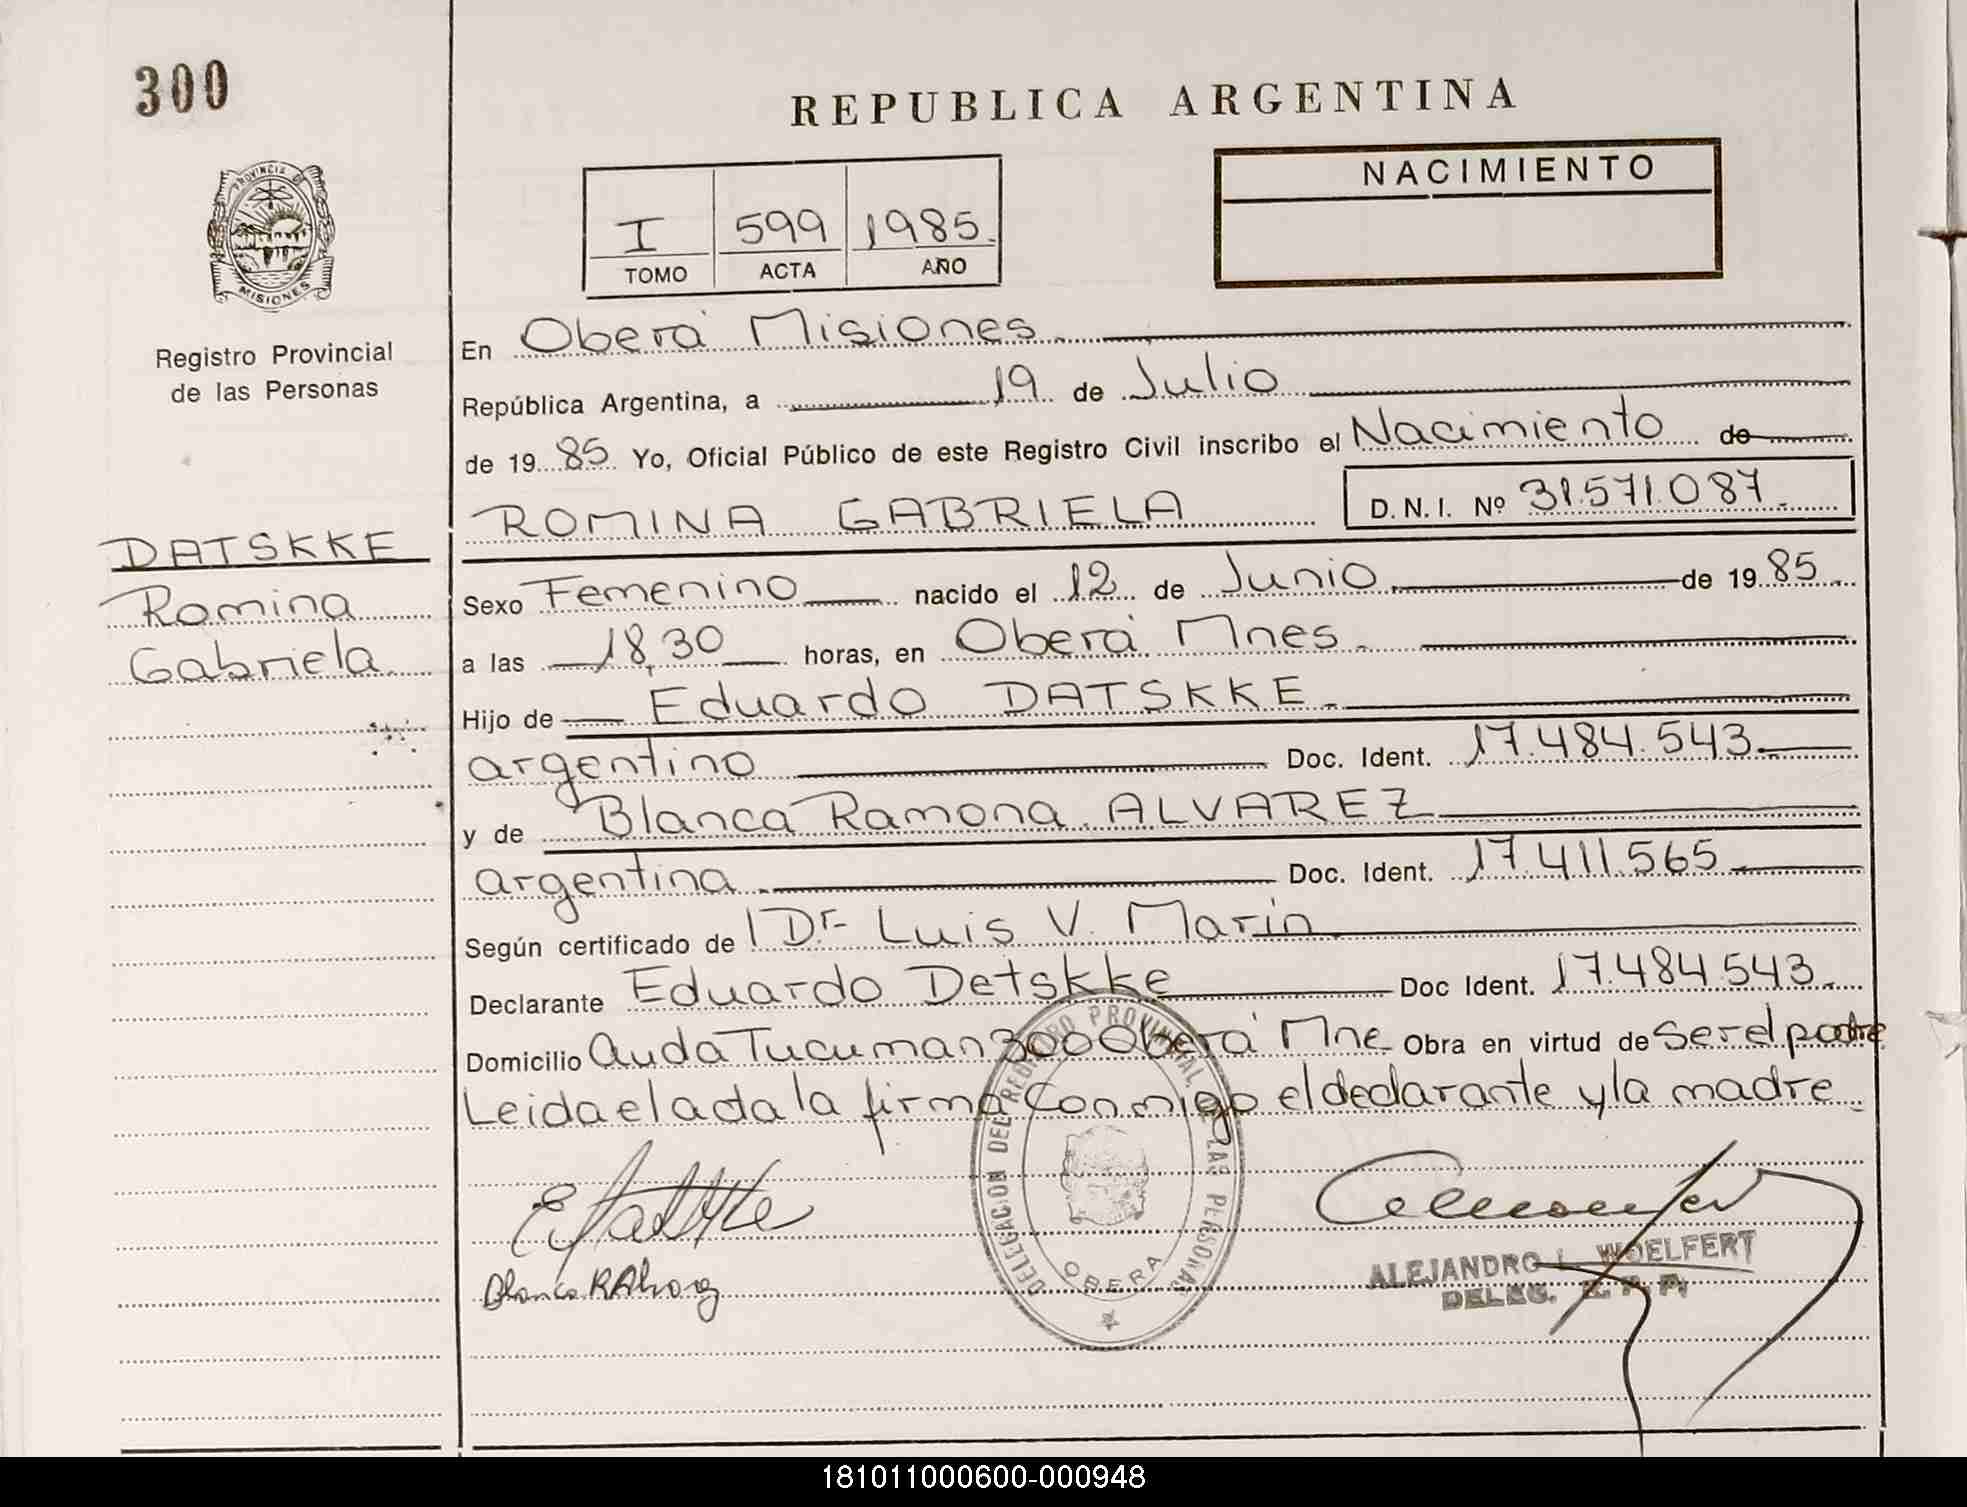 300
REPUBLICA ARGENTINA
NACIMIENTO
I 599 1985
TOMO ACTA AÑO
PROVINCIA D
MISIONES
Registro Provincial
de las Personas
En Oberá Misiones
República Argentina, a 19 de Julio
de 19 85 Yo, Oficial Público de este Registro Civil inscribo el Nacimiento de
ROMINA GABRIELA D.N.I. Nº 31.571.087
DATSKKE
Romina
Gabriela
Sexo Femenino nacido el 12 de Junio de 19 85
a las 18,30 horas, en Oberá Mnes.
Hijo de Eduardo DATSKKE.
argentino Doc. Ident. 17.484.543
y de Blanca Ramona ALVAREZ
argentina Doc. Ident. 17.411.565
Según certificado de Dr. Luis V. Marin
Declarante Eduardo Detskke Doc Ident. 17.484.543
Domicilio Auda Tucuman 300 Oberá Mne Obra en virtud de ser el padre
Leida el acta la firma conmigo el declarante y la madre
DELEGACION DEL REGISTRO PROVINCIAL LAS PERSONAS
OBERA
ALEJANDRO L. WOELFERT
DELEG. R. P. P.
181011000600-000948